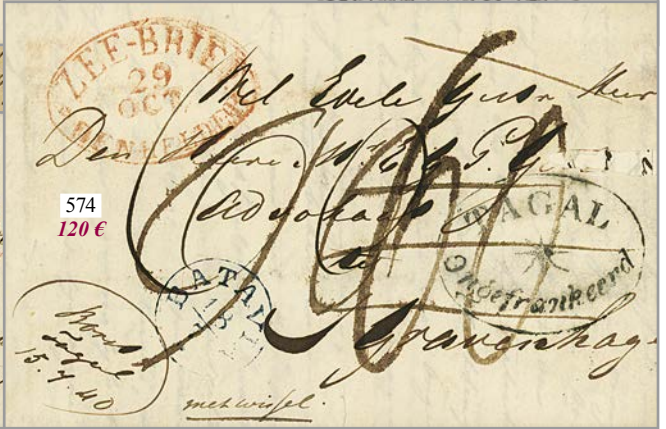 ZEE-BRIEF
29
OCT
DEN HELDER
Wel Edele Heer
Den Heere
Advocaat
te
Gravenhag
574
120 €
TAGAL
Ongefrankeerd
BATAVI
Tagal
15.7.40
met wissel.